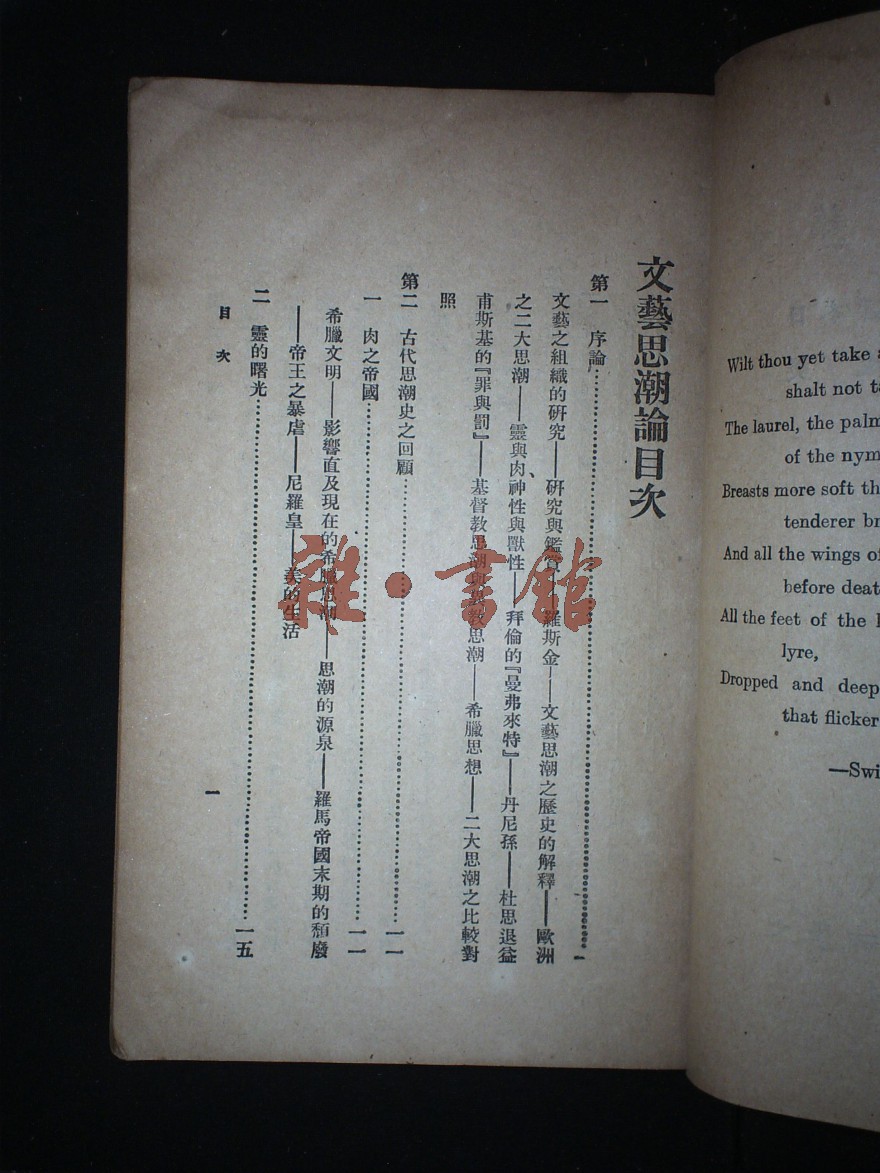 文藝思潮論目次
第一 序論……一
文藝之組織的研究——研究與鑑賞——羅斯金——文藝思潮之歷史的解釋——歐洲
之二大思潮——靈與肉、神性與獸性——拜倫的『曼弗來特』——丹尼孫——杜思退益
甫斯基的『罪與罰』——基督教思潮與異教思潮——希臘思想——二大思潮之比較對
照
第二 古代思潮史之回顧……一一
一 肉之帝國……一一
希臘文明——影響直及現在的希臘思潮——思潮的源泉——羅馬帝國末期的頹廢
——帝王之暴虐——尼羅皇——美的生活
二 靈的曙光……一五
目次
一
Wilt thou yet take
shalt not
The laurel, the palm
of the nym
Breasts more soft th
tenderer
And all the wings
before
All the feet of the
lyre,
Dropped and deep
that flicker
—Swi
雜·書館